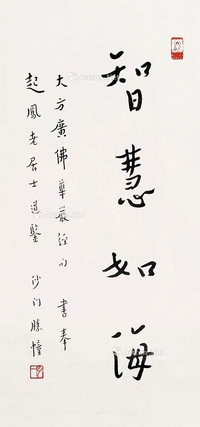 智慧如海
大方廣佛華嚴經句 書奉
起鳳老居士道鑒 沙門勝幢